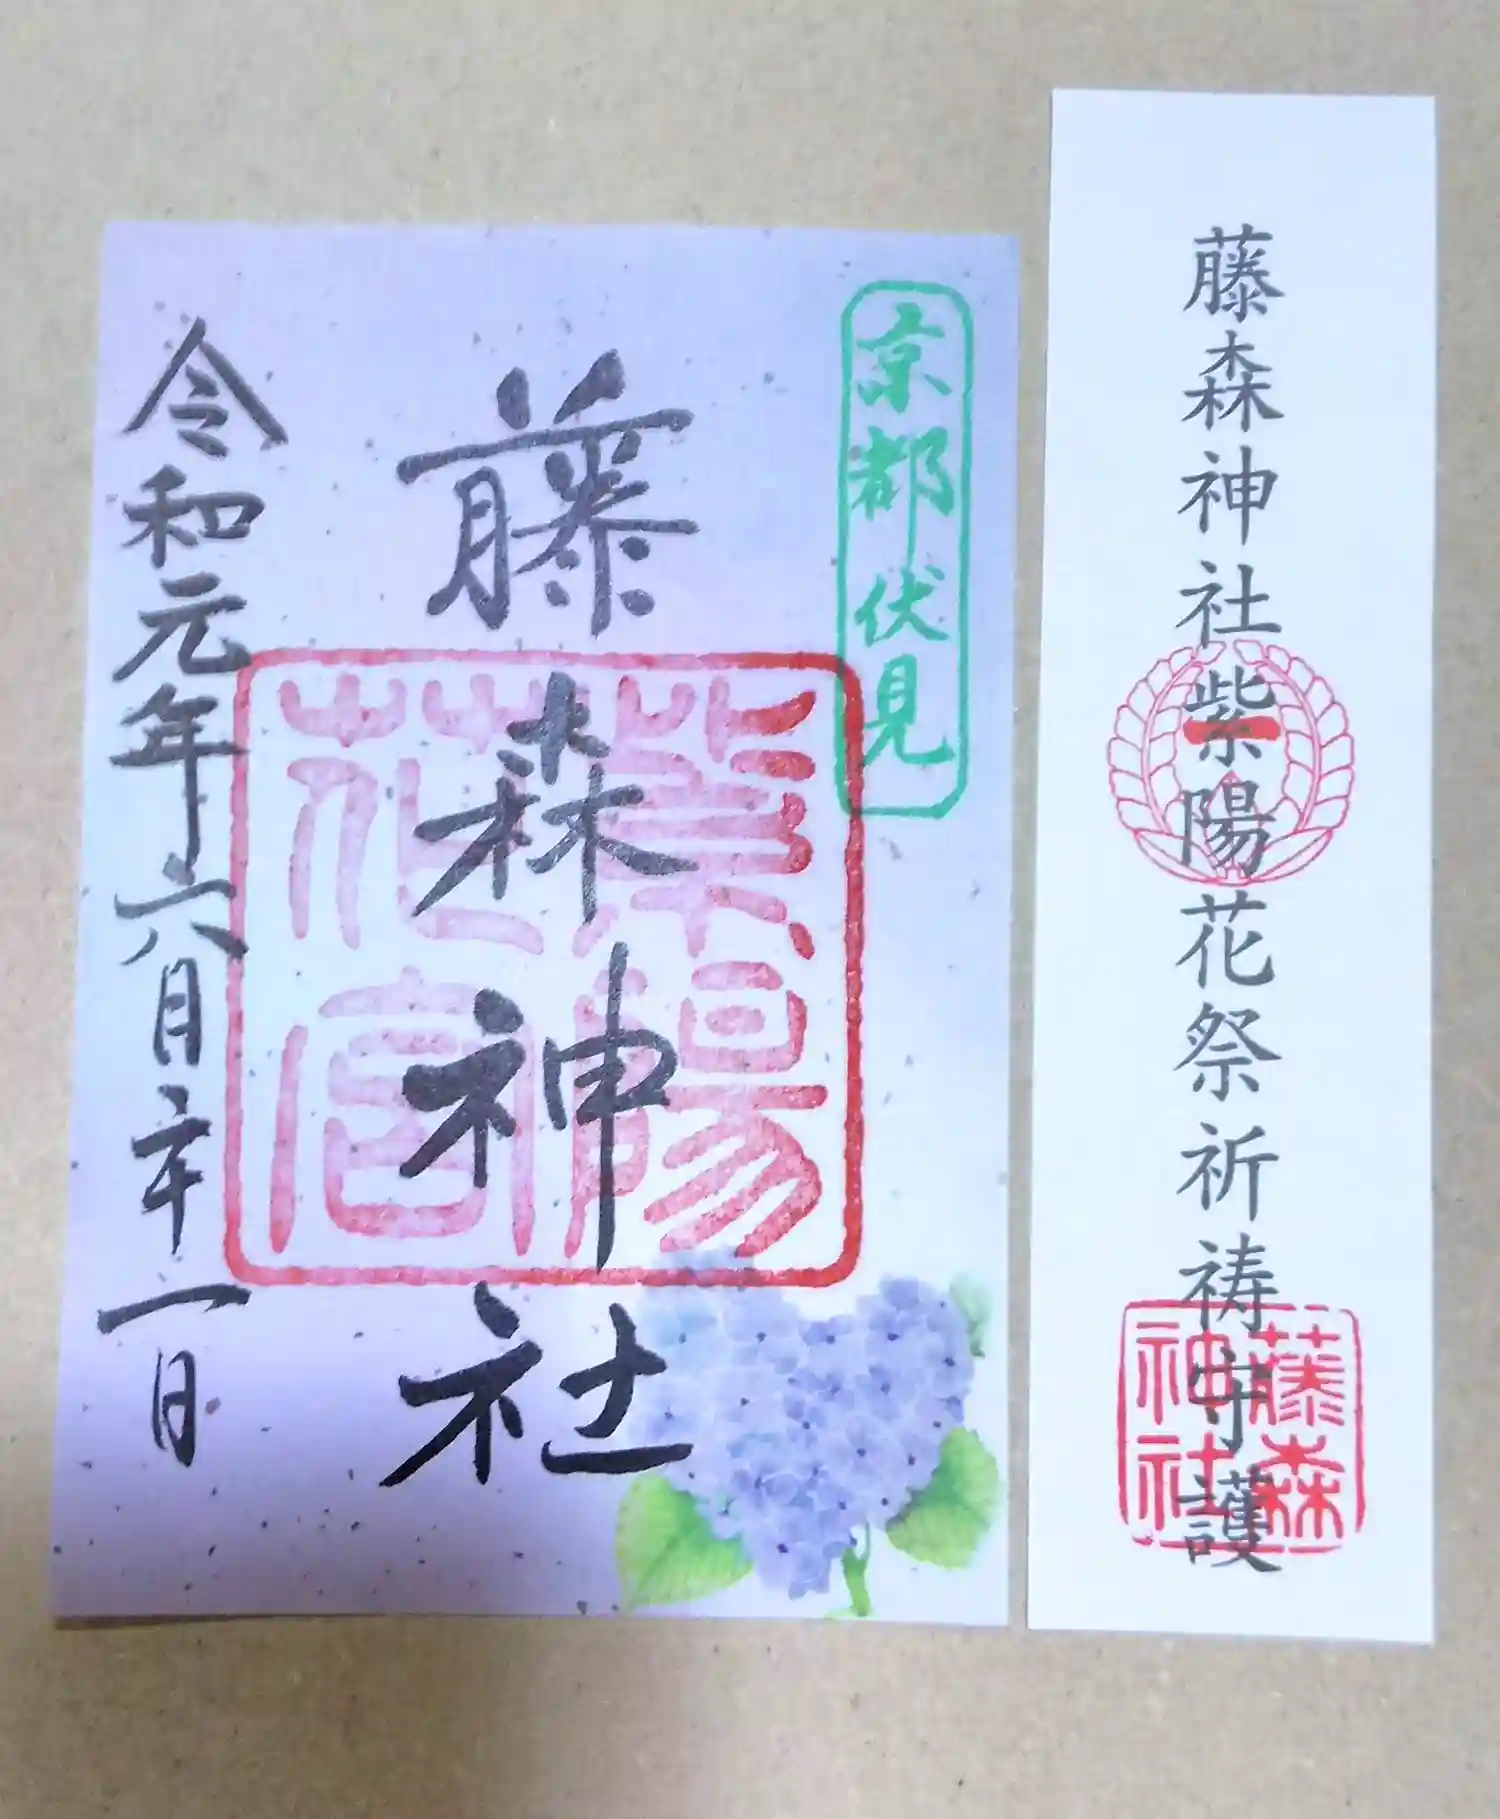 藤森神社紫陽花祭祈祷守護
一
藤森
神社
京都伏見
藤森神社
紫陽
花宮
令和元年六月二十一日